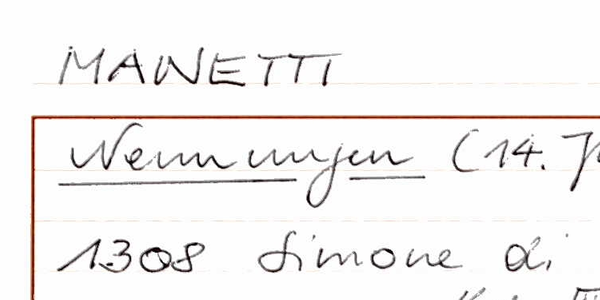 MANETTI
Nennungen (14. J
1308 Simone di